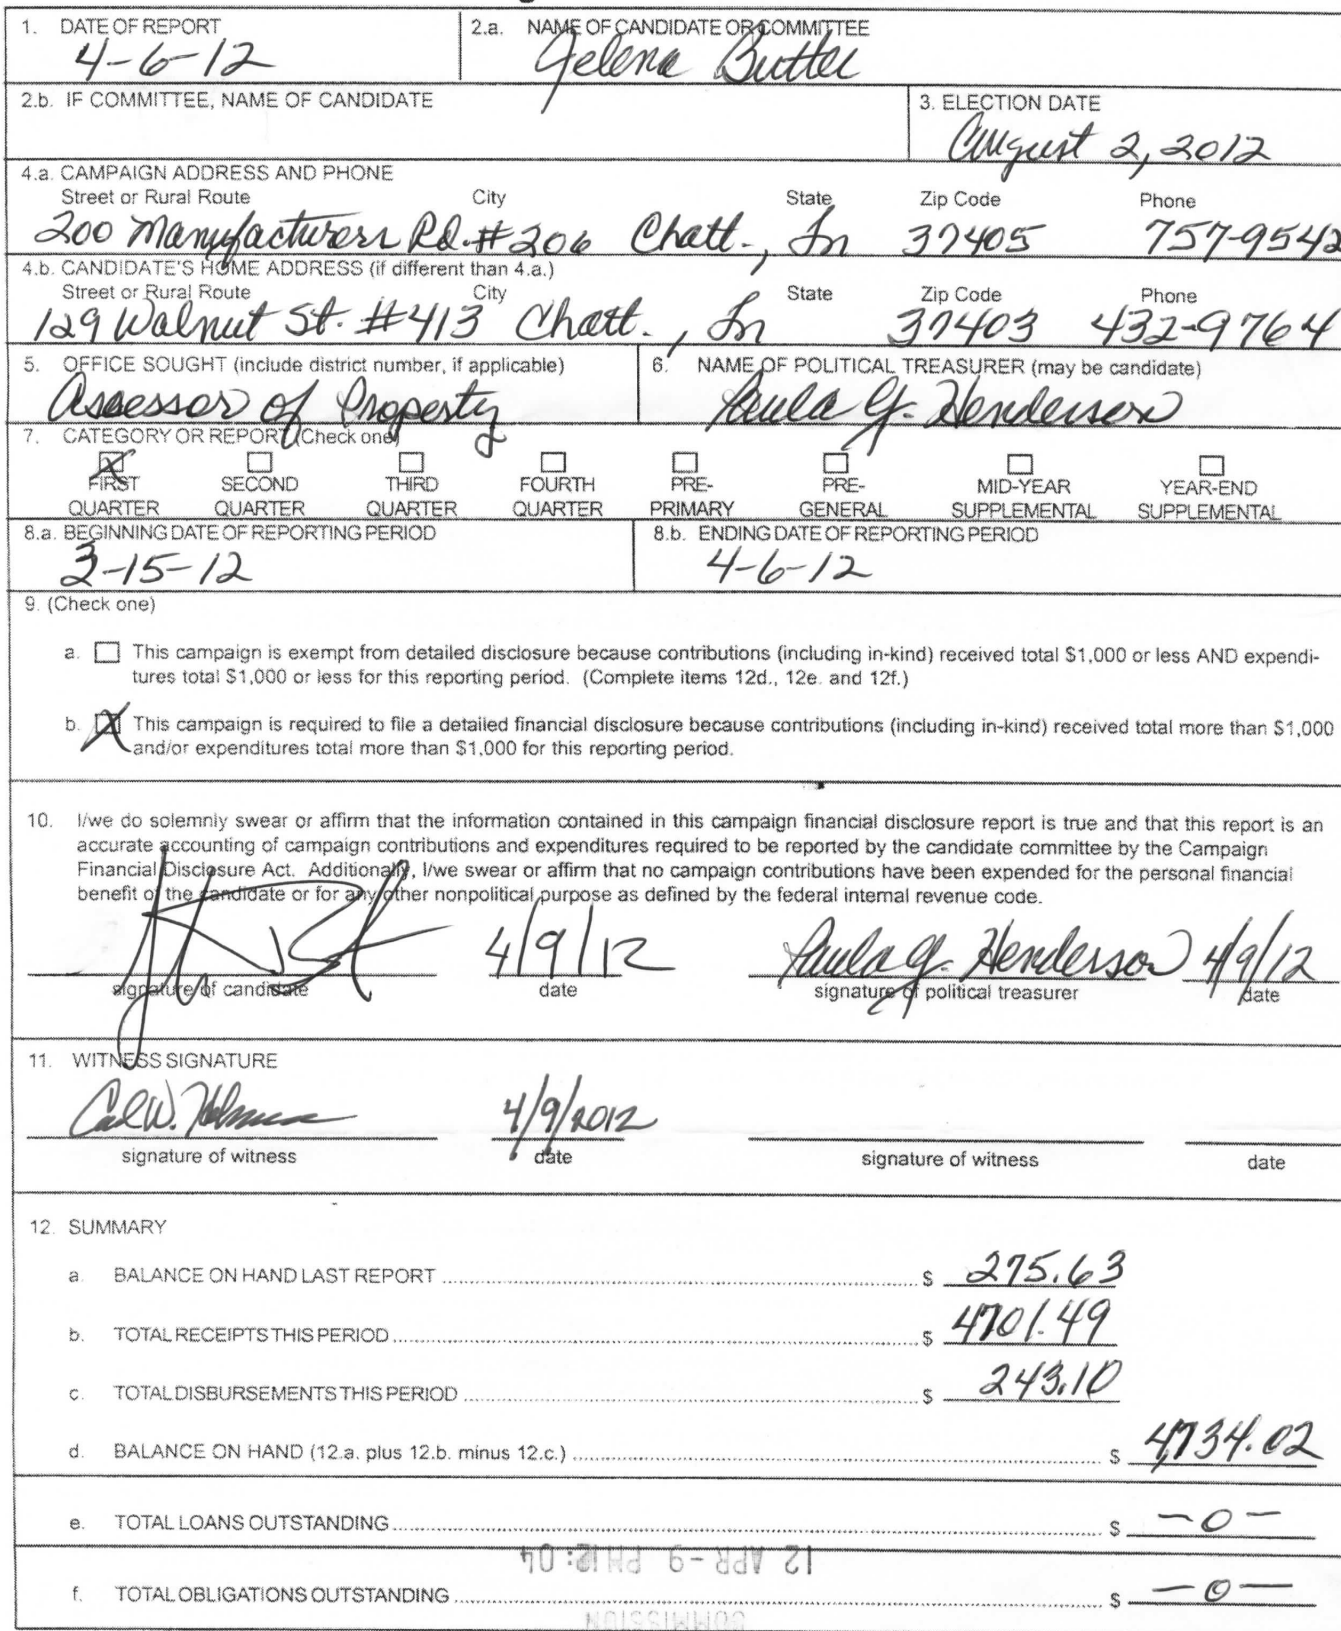 1. DATE OF REPORT
4-6-12
2.a. NAME OF CANDIDATE OR COMMITTEE
Jelena Butler
2.b. IF COMMITTEE, NAME OF CANDIDATE
3. ELECTION DATE
August 2, 2012
4.a. CAMPAIGN ADDRESS AND PHONE
Street or Rural Route City State Zip Code Phone
200 Manufacturers Rd. #206 Chatt., Tn 37405 757-9542
4.b. CANDIDATE'S HOME ADDRESS (if different than 4.a.)
Street or Rural Route City State Zip Code Phone
129 Walnut St. #413 Chatt., Tn 37403 432-9764
5. OFFICE SOUGHT (include district number, if applicable)
Assessor of Property
6. NAME OF POLITICAL TREASURER (may be candidate)
Paula G. Henderson
7. CATEGORY OR REPORT (Check one)
X
FIRST SECOND THIRD FOURTH PRE- PRE- MID-YEAR YEAR-END
QUARTER QUARTER QUARTER QUARTER PRIMARY GENERAL SUPPLEMENTAL SUPPLEMENTAL
8.a. BEGINNING DATE OF REPORTING PERIOD
3-15-12
8.b. ENDING DATE OF REPORTING PERIOD
4-6-12
9. (Check one)
a. This campaign is exempt from detailed disclosure because contributions (including in-kind) received total $1,000 or less AND expendi-
tures total $1,000 or less for this reporting period. (Complete items 12d., 12e. and 12f.)
b. X This campaign is required to file a detailed financial disclosure because contributions (including in-kind) received total more than $1,000
and/or expenditures total more than $1,000 for this reporting period.
10. I/we do solemnly swear or affirm that the information contained in this campaign financial disclosure report is true and that this report is an
accurate accounting of campaign contributions and expenditures required to be reported by the candidate committee by the Campaign
Financial Disclosure Act. Additionally, I/we swear or affirm that no campaign contributions have been expended for the personal financial
benefit of the candidate or for any other nonpolitical purpose as defined by the federal internal revenue code.
4/9/12 Paula G. Henderson 4/9/12
signature of candidate date signature of political treasurer date
11. WITNESS SIGNATURE
4/9/2012
signature of witness date signature of witness date
12. SUMMARY
a. BALANCE ON HAND LAST REPORT $ 275.63
b. TOTAL RECEIPTS THIS PERIOD $ 4701.49
c. TOTAL DISBURSEMENTS THIS PERIOD $ 243.10
d. BALANCE ON HAND (12.a. plus 12.b. minus 12.c.) $ 4,734.02
e. TOTAL LOANS OUTSTANDING $ -0-
12 APR -9 PM 12:04
f. TOTAL OBLIGATIONS OUTSTANDING $ -0-
COMMISSION